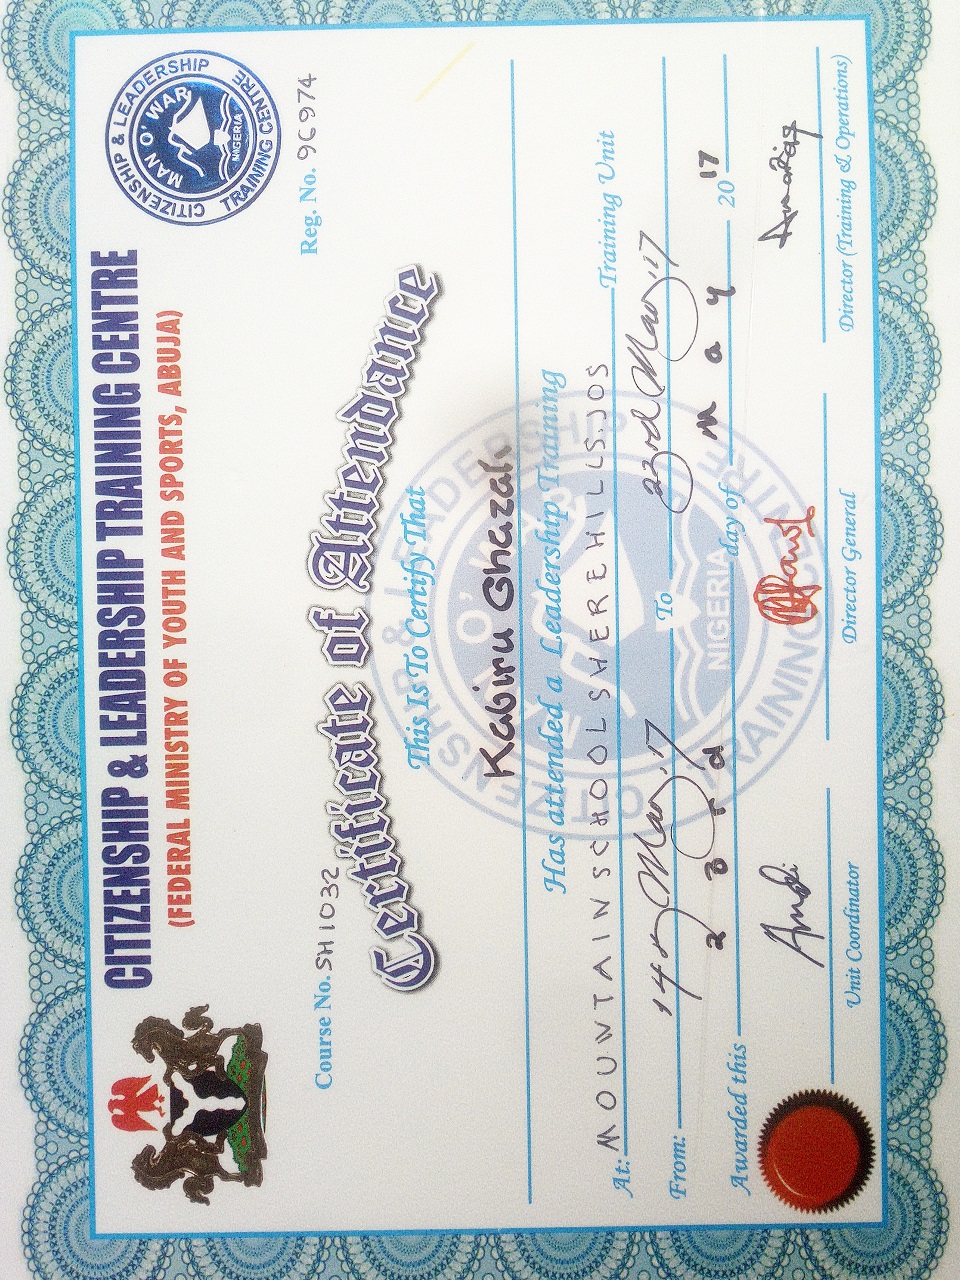 CITIZENSHIP & LEADERSHIP TRAINING CENTRE
(FEDERAL MINISTRY OF YOUTH AND SPORTS, ABUJA)
CITIZENSHIP & LEADERSHIP TRAINING CENTRE
MAN O' WAR
NIGERIA
Course No. SH1032
Reg. No. 96974
Certificate of Attendance
This Is To Certify That
Kabiru Ghazal
Has attended a Leadership Training
At: MOUNTAIN SCHOOL SHERE HILLS JOS Training Unit
From: 14th May '17 To 23rd May '17
Awarded this 23rd day of May 2017
Unit Coordinator
Director General
Director (Training & Operations)